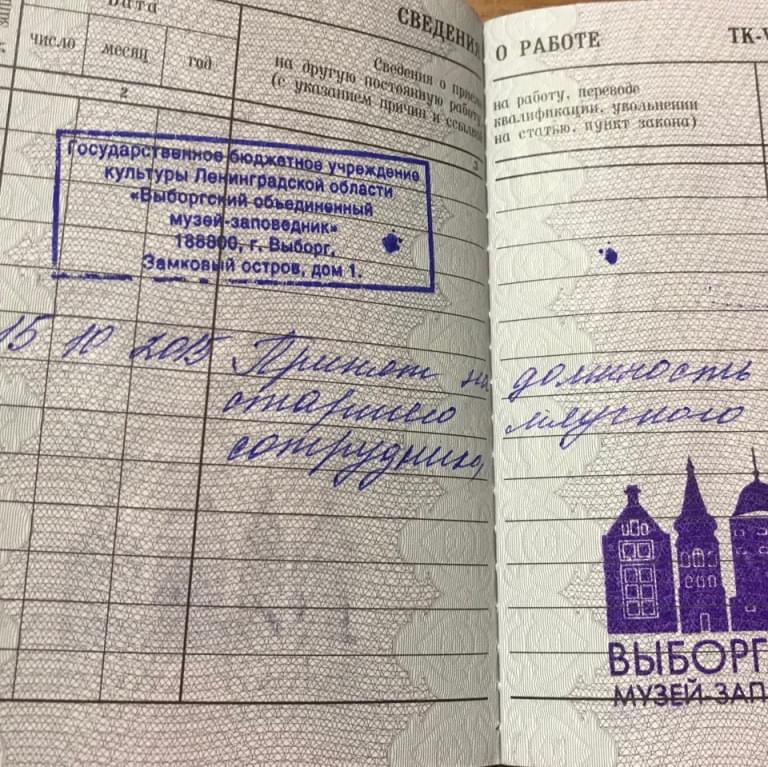 Дата
число
месяц
год
2
СВЕДЕНИЯ
Сведения о прие
на другую постоянную работу
(с указанием причин и ссылк
3
Государственное бюджетное учреждение
культуры Ленинградской области
«Выборгский объединенный
музей-заповедник»
188800, г. Выборг,
Замковый остров, дом 1.
О РАБОТЕ
ТК-
на работу, переводе
квалификации, увольнении
на статью, пункт закона)
15 10 2015 Принят на должность
старшего научного
сотрудника,
ВЫБОРГ
МУЗЕЙ-ЗАП